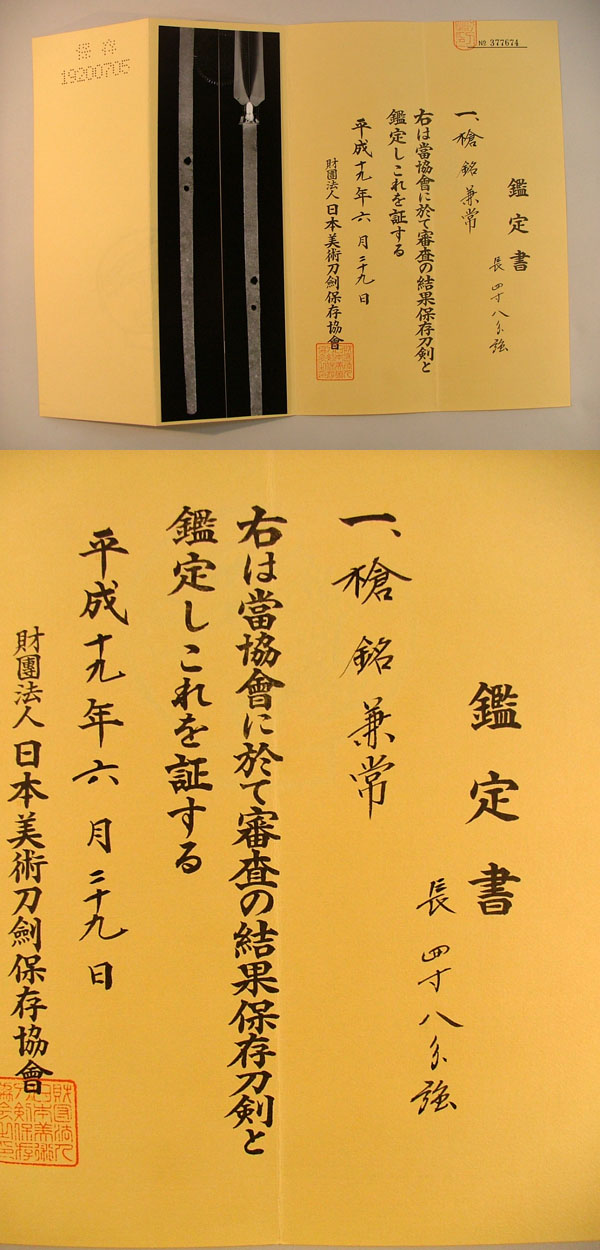 保存
19200705
№ 377674
鑑定書
一、槍 銘 兼常
長 四寸八分強
右は當協會に於て審査の結果保存刀剣と
鑑定しこれを証する
平成十九年六月二十九日
財團法人日本美術刀劍保存協會
鑑定書
一、槍 銘 兼常
長 四寸八分強
右は當協會に於て審査の結果保存刀剣と
鑑定しこれを証する
平成十九年六月二十九日
財團法人日本美術刀劍保存協會